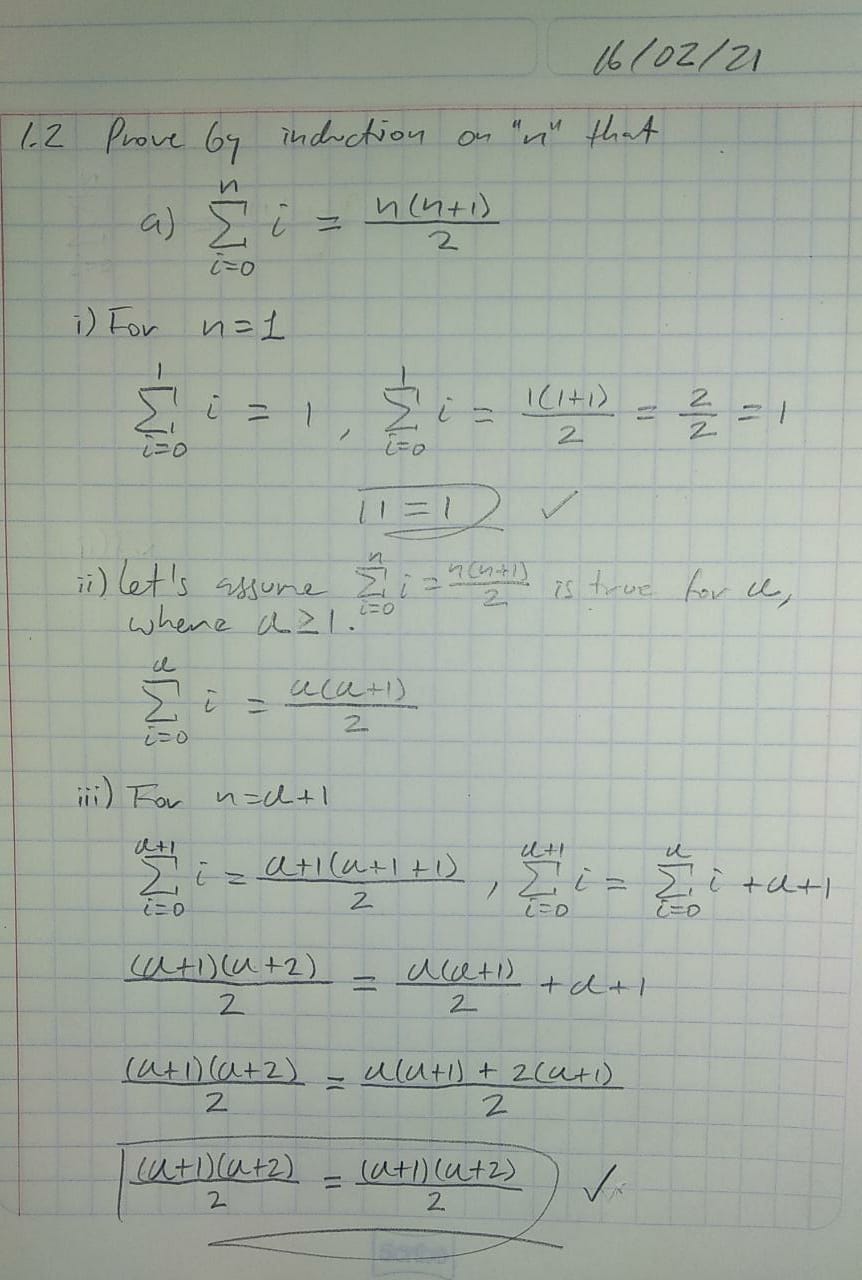 16/02/21
1.2 Prove by induction on "n" that
a) \sum_{i=0}^{n} i = \frac{n(n+1)}{2}
i) For n=1
\sum_{i=0}^{1} i = 1 , \sum_{i=0}^{1} i = \frac{1(1+1)}{2} = \frac{2}{2} = 1
1 = 1 ✓
ii) let's assume \sum_{i=0}^{n} i = \frac{n(n+1)}{2} is true for u,
where u ≥ 1.
\sum_{i=0}^{u} i = \frac{u(u+1)}{2}
iii) For n=u+1
\sum_{i=0}^{u+1} i = \frac{u+1(u+1+1)}{2} , \sum_{i=0}^{u+1} i = \sum_{i=0}^{u} i + u+1
\frac{(u+1)(u+2)}{2} = \frac{u(u+1)}{2} + u+1
\frac{(u+1)(u+2)}{2} = \frac{u(u+1) + 2(u+1)}{2}
\frac{(u+1)(u+2)}{2} = \frac{(u+1)(u+2)}{2} ✓